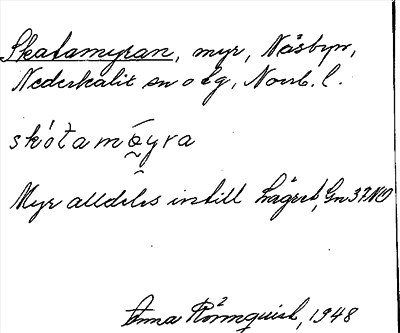 Skatamyran, myr, Näsbyn,
Nederkalix sn o tg, Norrb. l.
skótamǿyra
Myr alldeles intill Lägret, Gn 37 NO
Anna Rönnquist, 1948